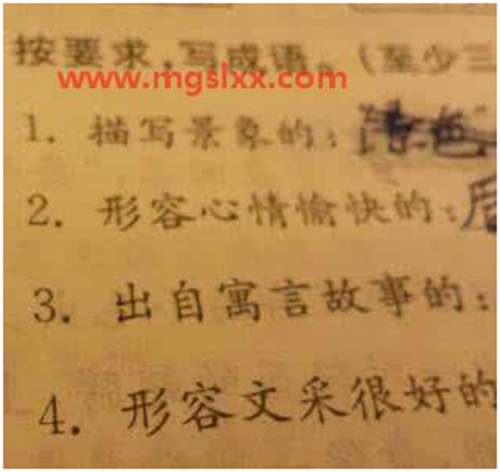 按要求,写成语。(至少三
www.mgslxx.com
1. 描写景象的:
2. 形容心情愉快的:
3. 出自寓言故事的:
4. 形容文采很好的